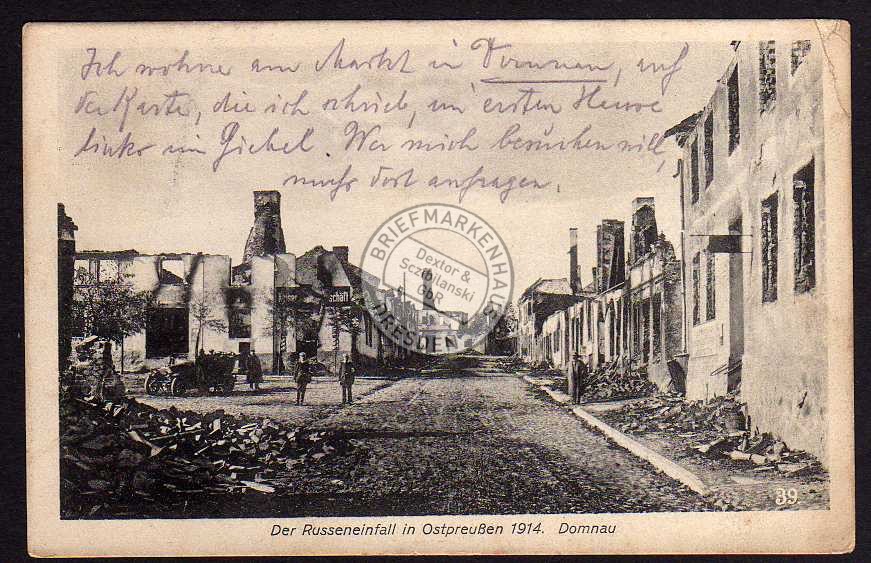 Ich wohne am Markt in Domnau, auf
der Karte, die ich schrieb, im ersten Hause
links im Giebel. Wer mich besuchen will,
muß dort anfragen.
BRIEFMARKENHAUS
Dextor &
Sczibilanski
GbR
DRESDEN
schäft
39
Der Russeneinfall in Ostpreußen 1914. Domnau